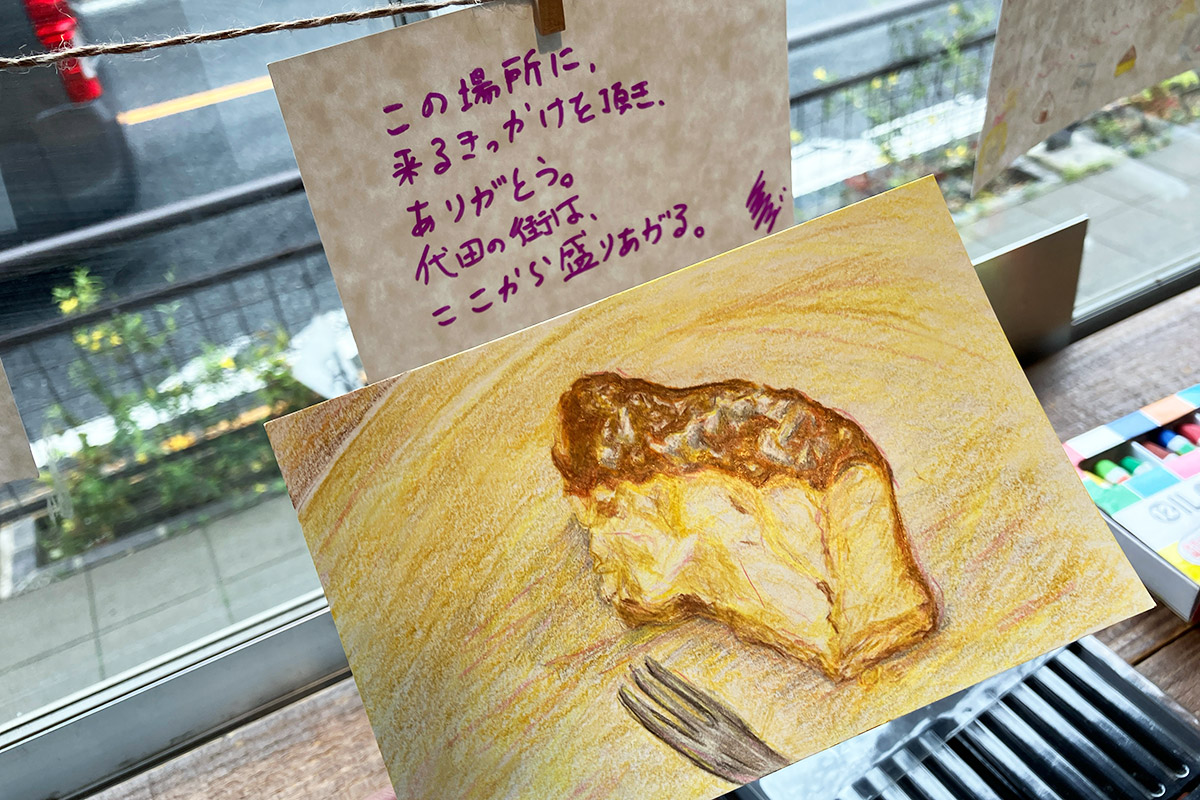 この場所に、
来るきっかけを頂き、
ありがとう。
代田の街は、
ここから盛りあがる。
12